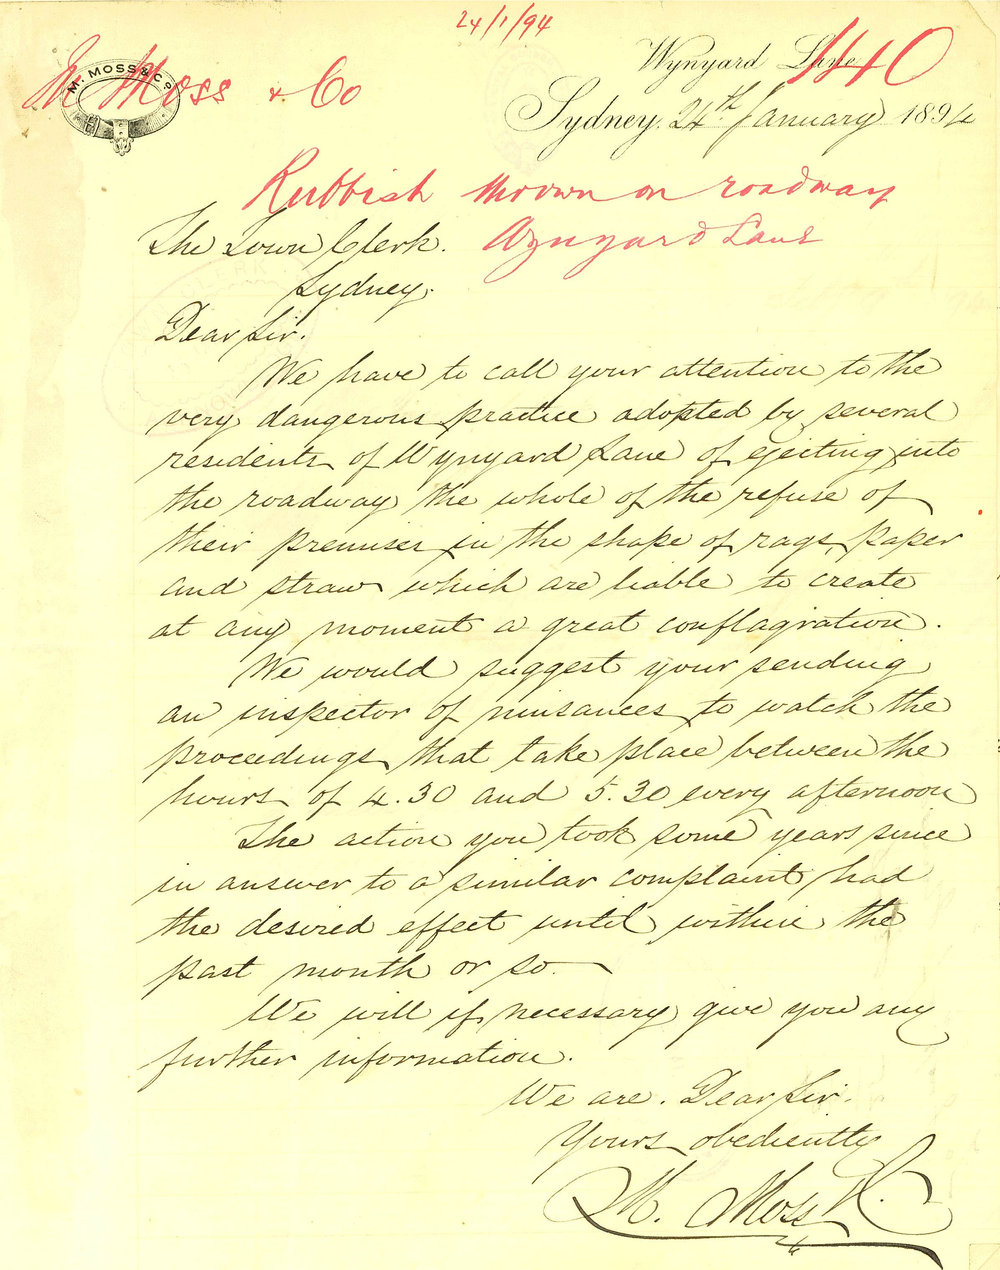 24/1/94
M. MOSS & Co.
M Moss & Co
Wynyard Lane
440
Sydney, 24th January 1894
Rubbish thrown on roadway
Wynyard Lane
The Town Clerk.
Sydney.
Dear Sir.
We have to call your attention to the
very dangerous practice adopted by several
residents of Wynyard Lane of ejecting into
the roadway the whole of the refuse of
their premises in the shape of rags, paper
and straw which are liable to create
at any moment a great conflagration.
We would suggest your sending
an inspector of nuisances to watch the
proceedings that take place between the
hours of 4.30 and 5.30 every afternoon
The action you took some years since
in answer to a similar complaint had
the desired effect until within the
past month or so.
We will if necessary give you any
further information.
We are. Dear Sir.
Yours obediently
M. Moss & Co